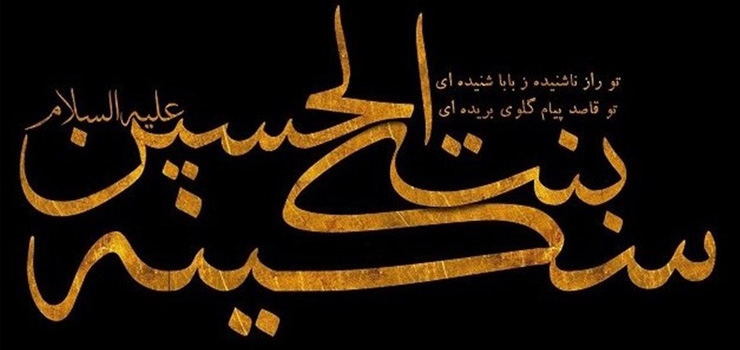 تو راز ناشنیده ز بابا شنیده ای
تو قاصد پیام گلوی بریده ای
سکینه
بنت الحسین علیه السلام